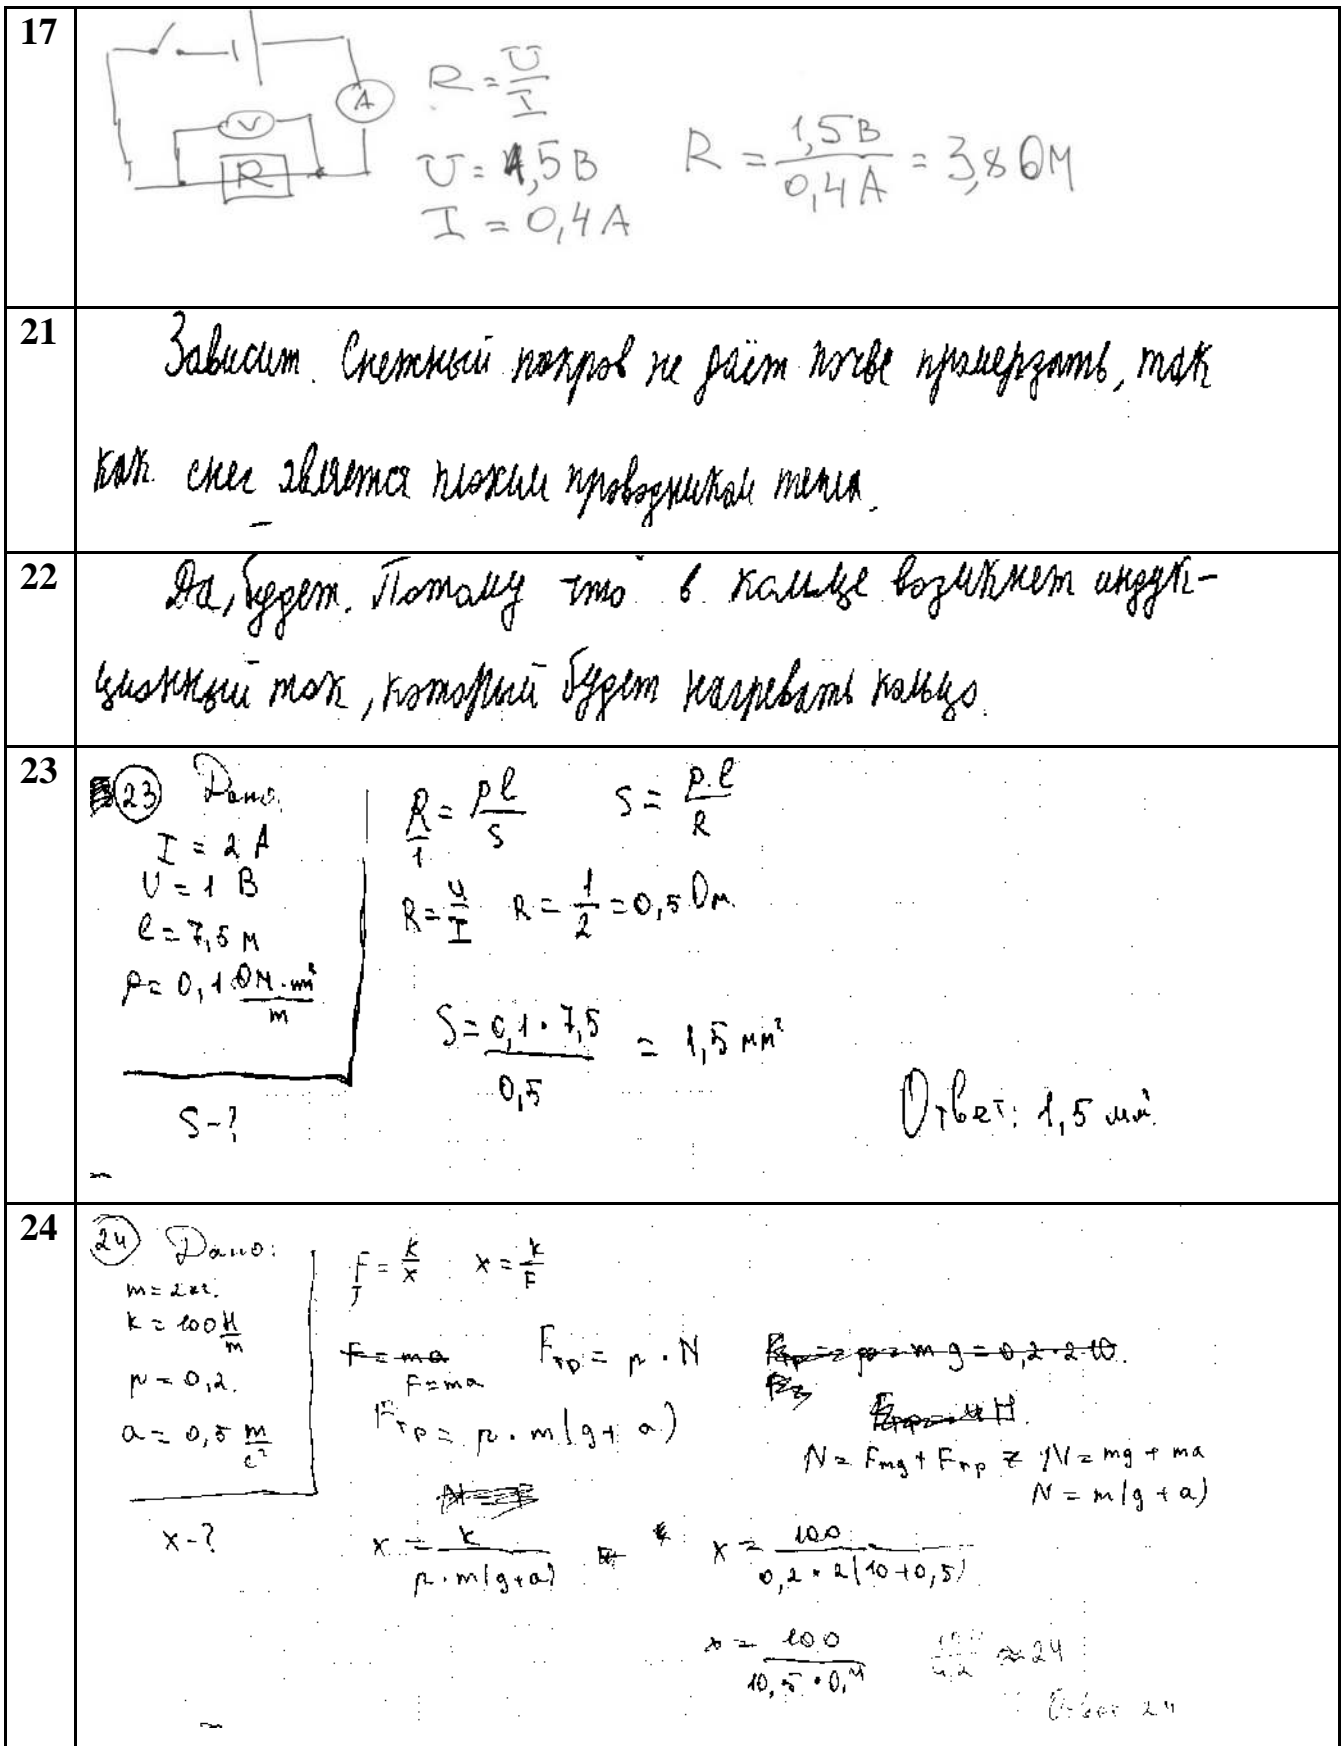 17
V
A
R
R = U/I
U = 1,5 В
I = 0,4 А
R = 1,5 В/0,4 А = 3,8 Ом
21
Зависит. Снежный покров не даёт почве промерзать, так
как снег является плохим проводником тепла.
22
Да, будет. Потому что в кольце возникнет индук-
ционный ток, который будет нагревать кольцо.
23
23 Дано:
I = 2 А
U = 1 В
l = 7,5 м
ρ = 0,1 Ом·мм²/м
S-?
R/1 = ρl/S S = ρ·l/R
R = U/I R = 1/2 = 0,5 Ом
S = 0,1·7,5/0,5 = 1,5 мм²
Ответ: 1,5 мм²
24
24 Дано:
m = 2 кг.
k = 100 Н/м
μ = 0,2.
a = 0,5 м/с²
x-?
F = k/x x = k/F
F = ma Fтр = μ·N Fтр = μ = mg = 0,2·2·10.
F = ma
Fтр = μ·m(g + a)
N = Fmg + Fтр N = mg + ma
N = m(g + a)
x = k/μ·m(g+a) x = 100/0,2·2(10+0,5)
x = 100/10,5·0,4 100/4,2 ≈ 24
Ответ 24